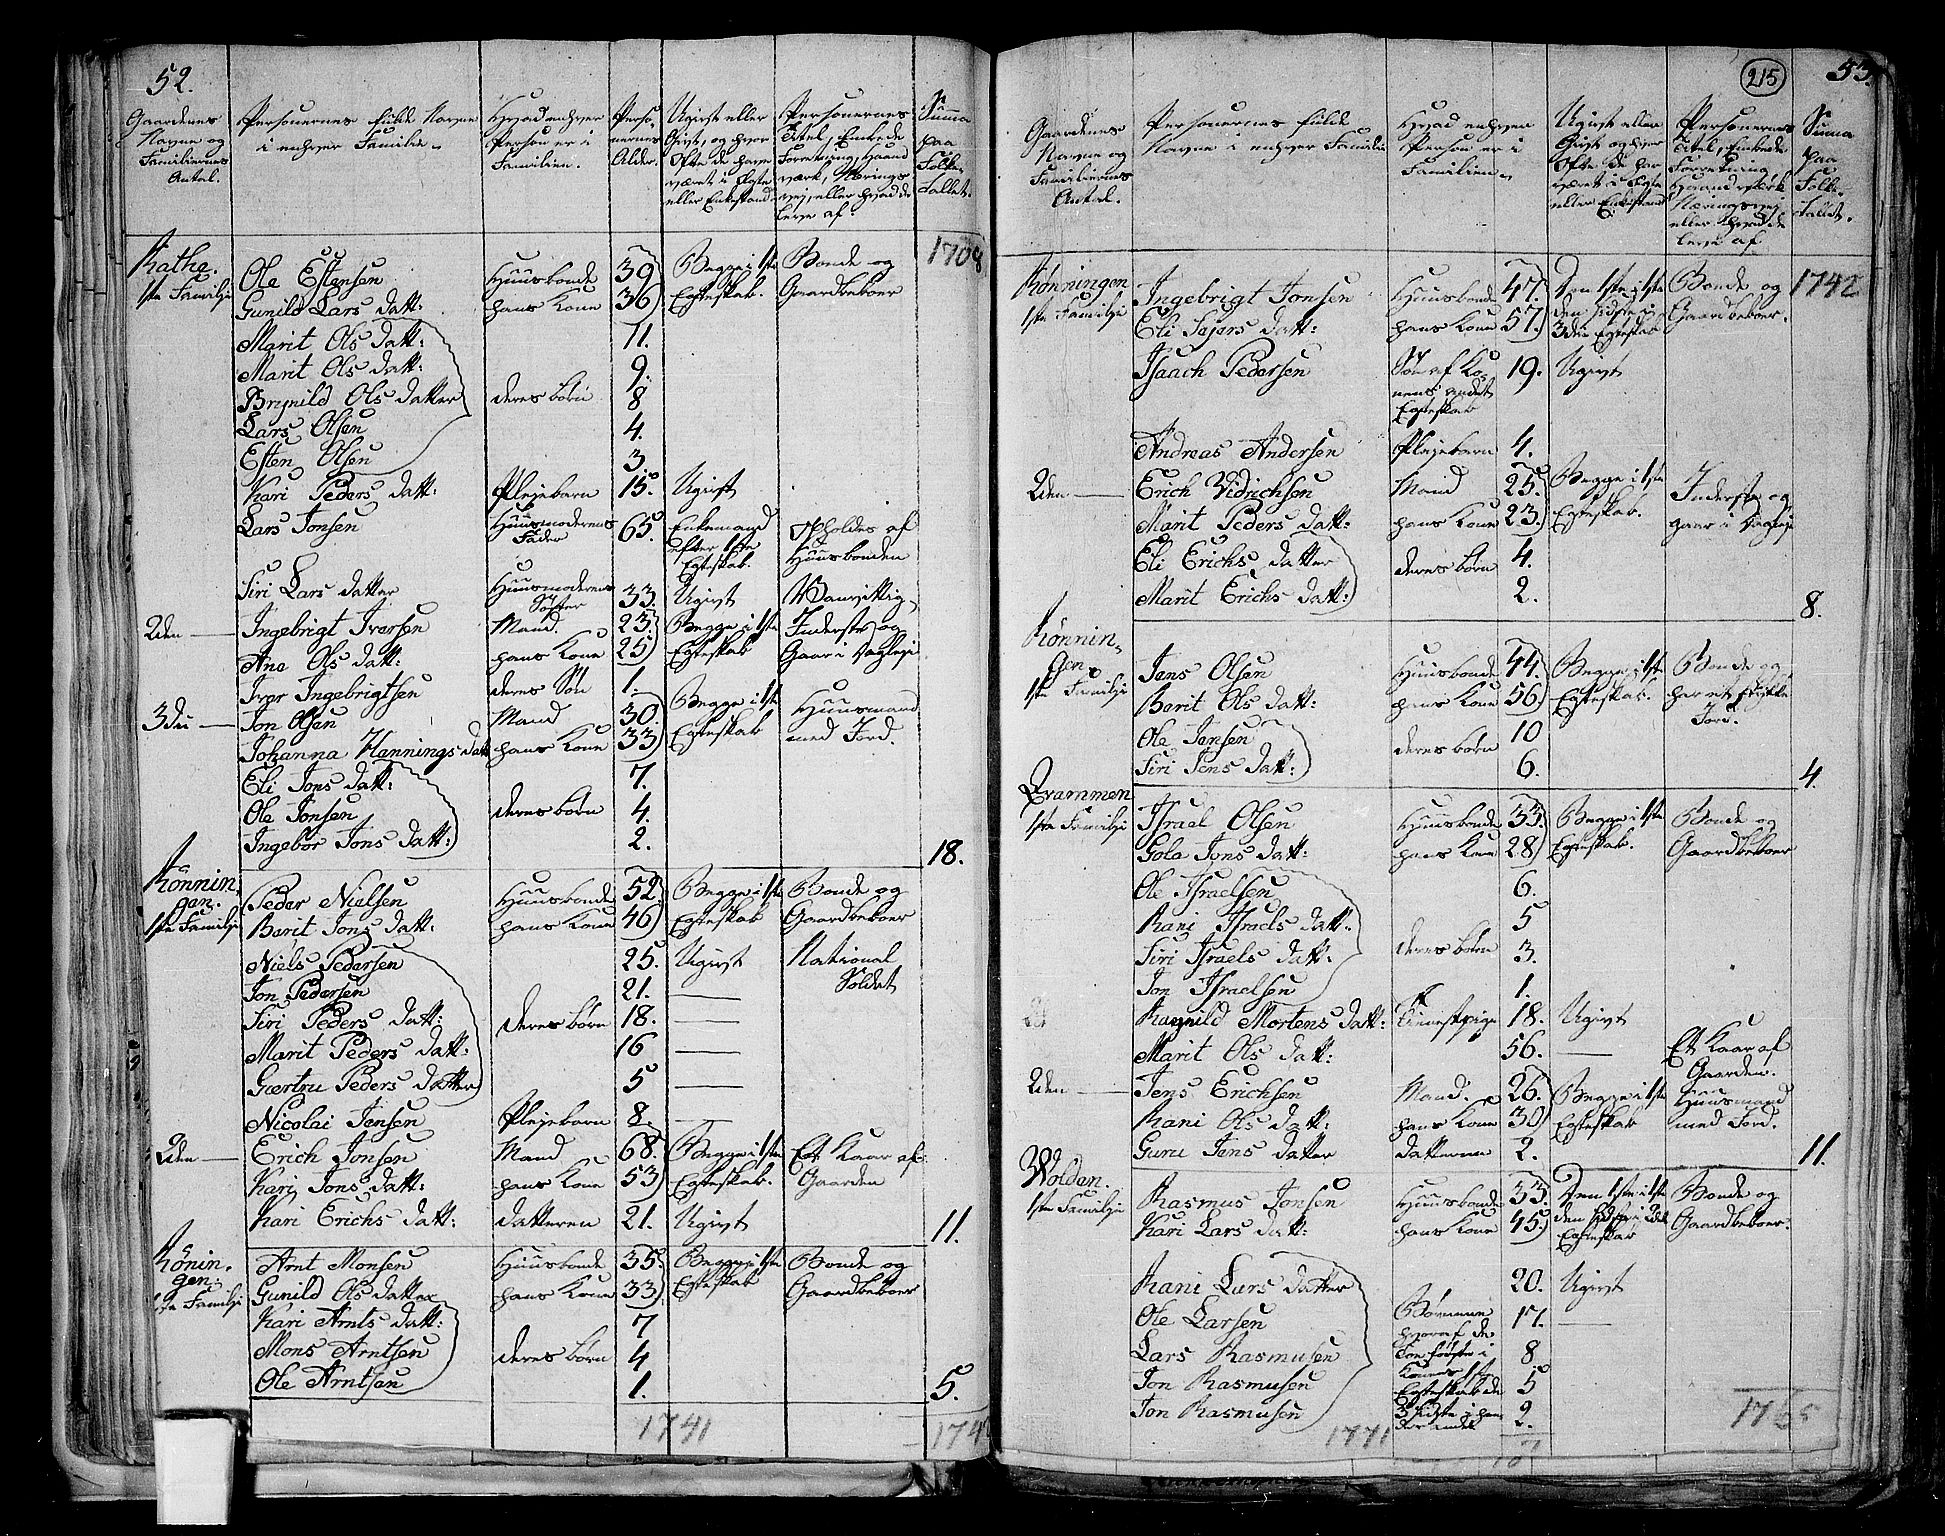 52.
Gaardenes Navne og Familiernes Antal.
Personernes fulde Navne i enhver Familie.
Hvad enhver Person er i Familien.
Personernes Alder.
Ugivt eller Givt, og hvor Ofte de have været i Egte eller Enkestand
Personernes Titel, Embede Forretning, Haandværk, Næringsvej, eller hvad de leve af.
Summa paa Folketallet.
Rathe. 1708
1ste Familie Ole Estensen Huusbonde 39 Begge i 1ste Bonde og
Gunild Lars Datt: hans Kone 36 Egteskab. Gaardbeboer
Marit Ols Datt: 11.
Marit Ols Datt: 9.
Brynild Ols Datter deres børn 8
Lars Olsen 4.
Esten Olsen 3.
Kari Peders Datt: Plejebarn 15. Ugift
Lars Jonsen Huusmoderens Fader 65. Enkemand efter 1ste Egteskab. opholdes af Huusbonden
Siri Lars Datter Huusmoderens Søster 33. Ugivt Wanvittig
2den Ingebrigt Iversen Mand. 23 Begge i 1ste Inderste og
Ane Ols Datt: hans Kone 25 Egteskab Gaar i Dagleje
Iver Ingebrigtsen deres Søn 1.
3die Jon Olsen Mand 30. Begge i 1ste Huusmand
Johanna Hannings Datt hans Kone 33 Egteskab med Jord.
Eli Jons Datt: 7.
Ole Jonsen deres børn 4.
Ingebor Jons Datt: 2. 18.
Rönningen.
1ste Familie Peder Nielsen Huusbonde 52 Begge i 1ste Bonde og
Berit Jons Datt: hans Kone 46 Egteskab Gaardbeboer
Niels Pedersen 25. Ugivt National Soldat
Jon Pedersen 21. —
Siri Peders Datt: deres børn 18. —
Marit Peders Datt: 16 —
Gertru Peders Datter 5 —
Nicolai Jensen Plejebarn 8. —
2den Erich Jonsen Mand 68. Begge i 1ste Et Kaar af
Kari Jons Datt: hans Kone 53 Egteskab. Gaarden
Kari Erichs Datt: Datteren 21. Ugivt 11.
Rönningen.
1ste Familie Arnt Monsen Huusbonde 35. Begge i 1ste Bonde og
Gunild Ols Datter hans Kone 33 Egteskab Gaardbeboer
Kari Arnts Datt: 7
Mons Arntsen deres børn 4
Ole Arntsen 1. 5.
1741 174
215 53.
Gaardenes Navne og Familiernes Antal.
Personernes fulde Navne i enhver Familie
Hvad enhver Person er i Familien.
Ugivt eller Givt og hvor Ofte de har været i Egte eller Enkestand
Personernes Titel, Embede Forretning Haandværk Næringsvej eller hvad de leve af.
Summa paa Folketallet.
Rönningen 1742
1ste Familie Ingebrigt Jonsen Huusbonde 47. Den 1ste i 1ste Bonde og
Eli Sajers Datt: hans Kone 57. den sidste i 3die Egteskab Gaardbeboer.
Isaach Pedersen Søn af Konens andet Egteskab 19. Ugivt
Andreas Andersen Plejebarn 4.
2den Erich Didrichsen Mand 25. Begge i 1ste Inderste og
Marit Peders Datt: hans Kone 23. Egteskab. gaar i Dagleje
Eli Erichs Datter deres børn 4.
Marit Erichs Datt: 2. 8.
Rönningen.
1ste Familie Jens Olsen Huusbonde 44. Begge i 1ste Bonde og
Berit Ols Datt: hans Kone 56 Egteskab. har et Stykke Jord.
Ole Jensen deres børn 10
Siri Jens Datt: 6. 4.
Qvammen
1ste Familie Israel Olsen Huusbonde 33. Begge i 1ste Bonde og
Gola Jons Datt: hans Kone 28 Egteskab. Gaardbeboer
Ole Israelsen 6.
Rani Israels Datt: 5
Siri Israels Datt: deres børn 3.
Jon Israelsen 1.
Ragnild Mortens Datt: Tienestepige 18. Ugivt
Marit Ols Datt: 56. — Et Kaar af Gaarden.
2den Jens Erichsen Mand. 26. Begge i 1ste Huusmand
Rani Ols Datt: hans Kone 30 Egteskab med Jord.
Guru Jens Datter Datteren 2. 11.
Wolden.
1ste Familie Rasmus Jonsen Huusbonde 33. Den 1ste i 1ste Bonde og
Kari Lars Datt: hans Kone 45. den sidste i 2det Egteskab Gaardbeboer.
Rani Lars Datter 20. Ugivt
Ole Larsen Børnene 17. —
Lars Rasmusen hvoraf de Toe første i 8
Jon Rasmusen Konens 1ste Egteskab de 5
Jon Rasmusen 3 sidste i hendes andet 2.
1771 1765